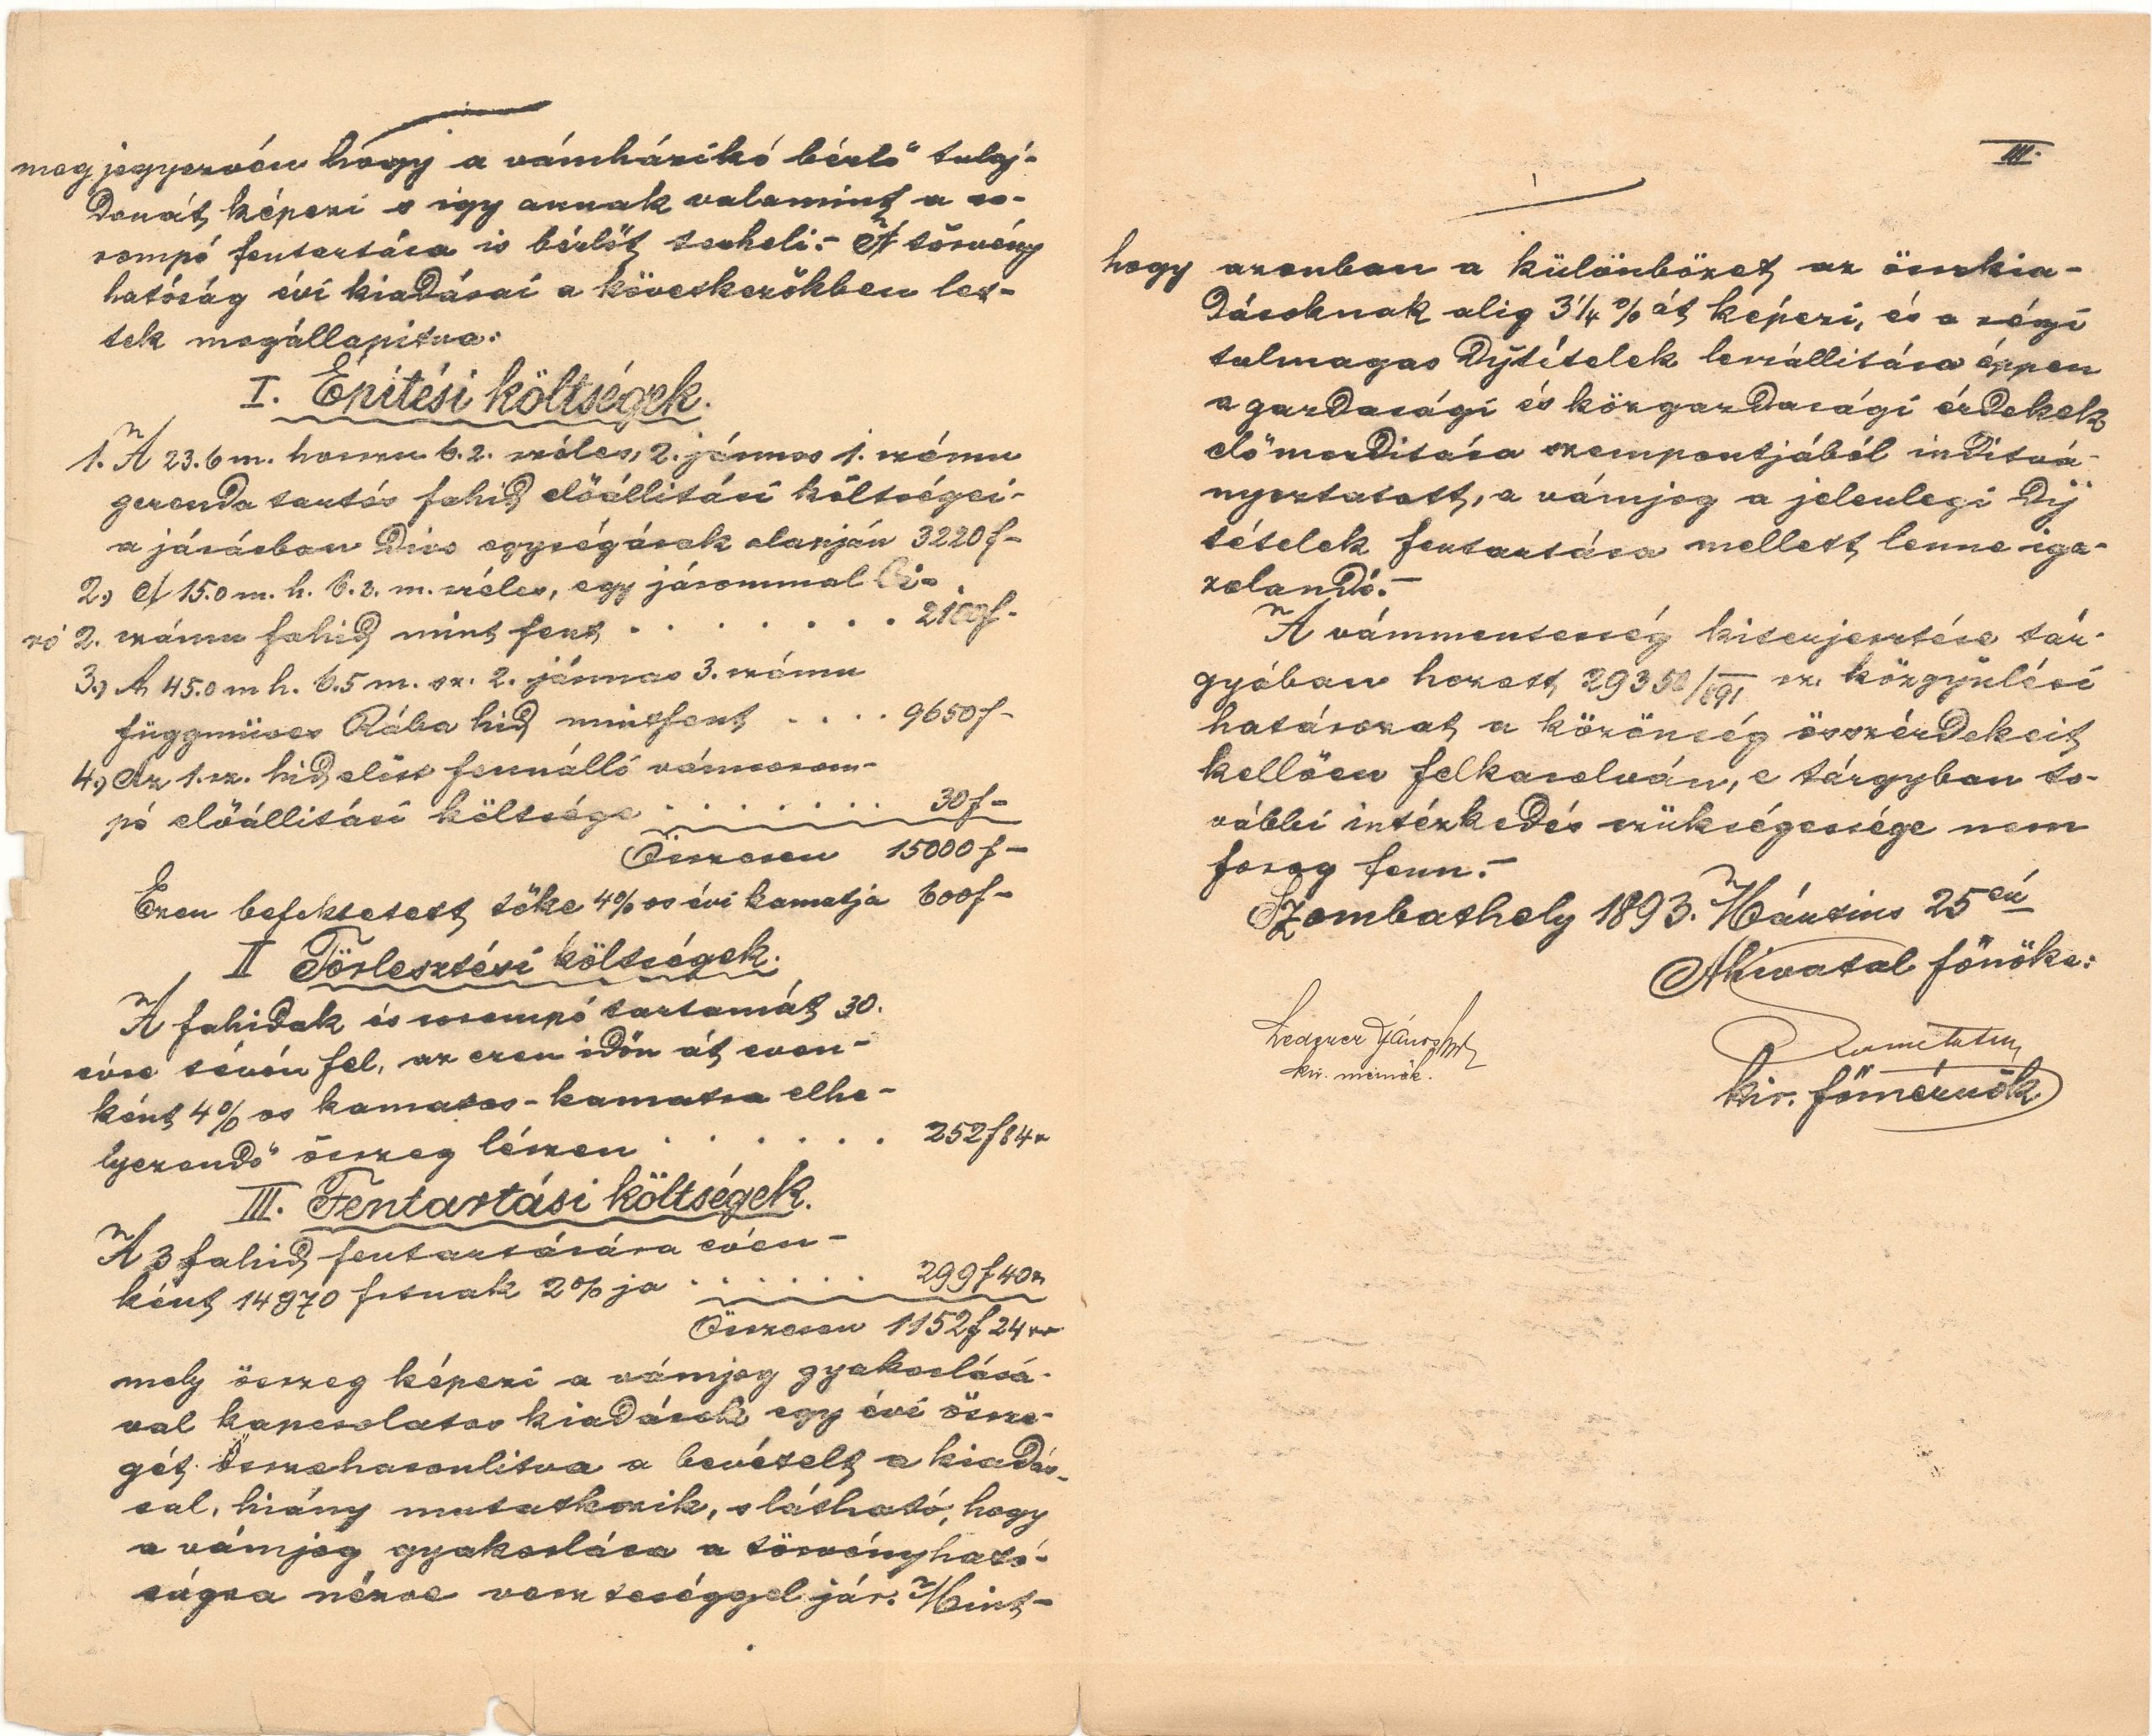 megjegyezvén hogy a vámházikó bérlő tulaj-
donát képezi s igy annak valamint a so-
rompó fentartása is bérlőt terheli.- A törvény
hatóság évi kiadásai a következőkben let-
tek megállapitva:
I. Épitési költségek.
1. A 23.6 m. hosszu 6.2. széles, 2. jármos 1. számu
gerenda tartós fahid előállitási költségei-
a járásban divó egységárak alapján 3220 f-
2.) A 15.0 m. h. 6.3. m. széles, egy járommal bi-
ró 2. számu fahid mint fent . . . . . . . 2100 f-
3.) A 45.0 m h. 6.5 m. sz. 2. jármas 3. számu
függmüves Rába hid mintfent . . . . 9650 f-
4.) Az 1. sz. hid előtt fennálló vámsorom-
pó előállitási költsége . . . . . . . 30 f-
Összesen 15000 f-
Ezen befektetett tőke 4% os évi kamatja 600 f-
II Törlesztési költségek.
A fahidak és sorompó tartamát 30.
évre tévén fel, az ezen időn át éven-
ként 4% os kamatos-kamatra elhe-
lyezendő összeg lészen . . . . . . 252 f 84 x
III. Fentartási költségek.
A 3 fahid fentartására éven-
ként 14970 frtnak 2% ja . . . . . . 299 f 40 x
Összesen 1152 f 24 xr
mely összeg képezi a vámjog gyakorlásá-
val kapcsolatos kiadások egy évi össze-
gét. Összehasonlitva a bevételt a kiadás-
sal, hiány mutatkozik, s látható, hogy
a vámjog gyakorlása a törvényható-
ságra nézve veszteséggel jár. Mint-
III.
hogy azonban a különbözet az összkia-
dásoknak alig 3 1/4 % át képezi, és a régi
tulmagas dijtételek leszállitása éppen
a gazdasági és közgazdasági érdekek
előmozditása szempontjából inditvá-
nyoztatott, a vámjog a jelenlegi dij
tételek fentartása mellett lenne iga-
zolandó.-
A vámmentesség kiterjesztése tár-
gyában hozott 29358/III 891 sz. közgyülési
határozat a közönség összérdekeit
kellően felkarolván, e tárgyban to-
vábbi intézkedés szükségessége nem
forog fenn.-
Szombathely 1893. Március 25 én
A hivatal főnöke:
Lederer János
kir. mérnök.
kir. főmérnök